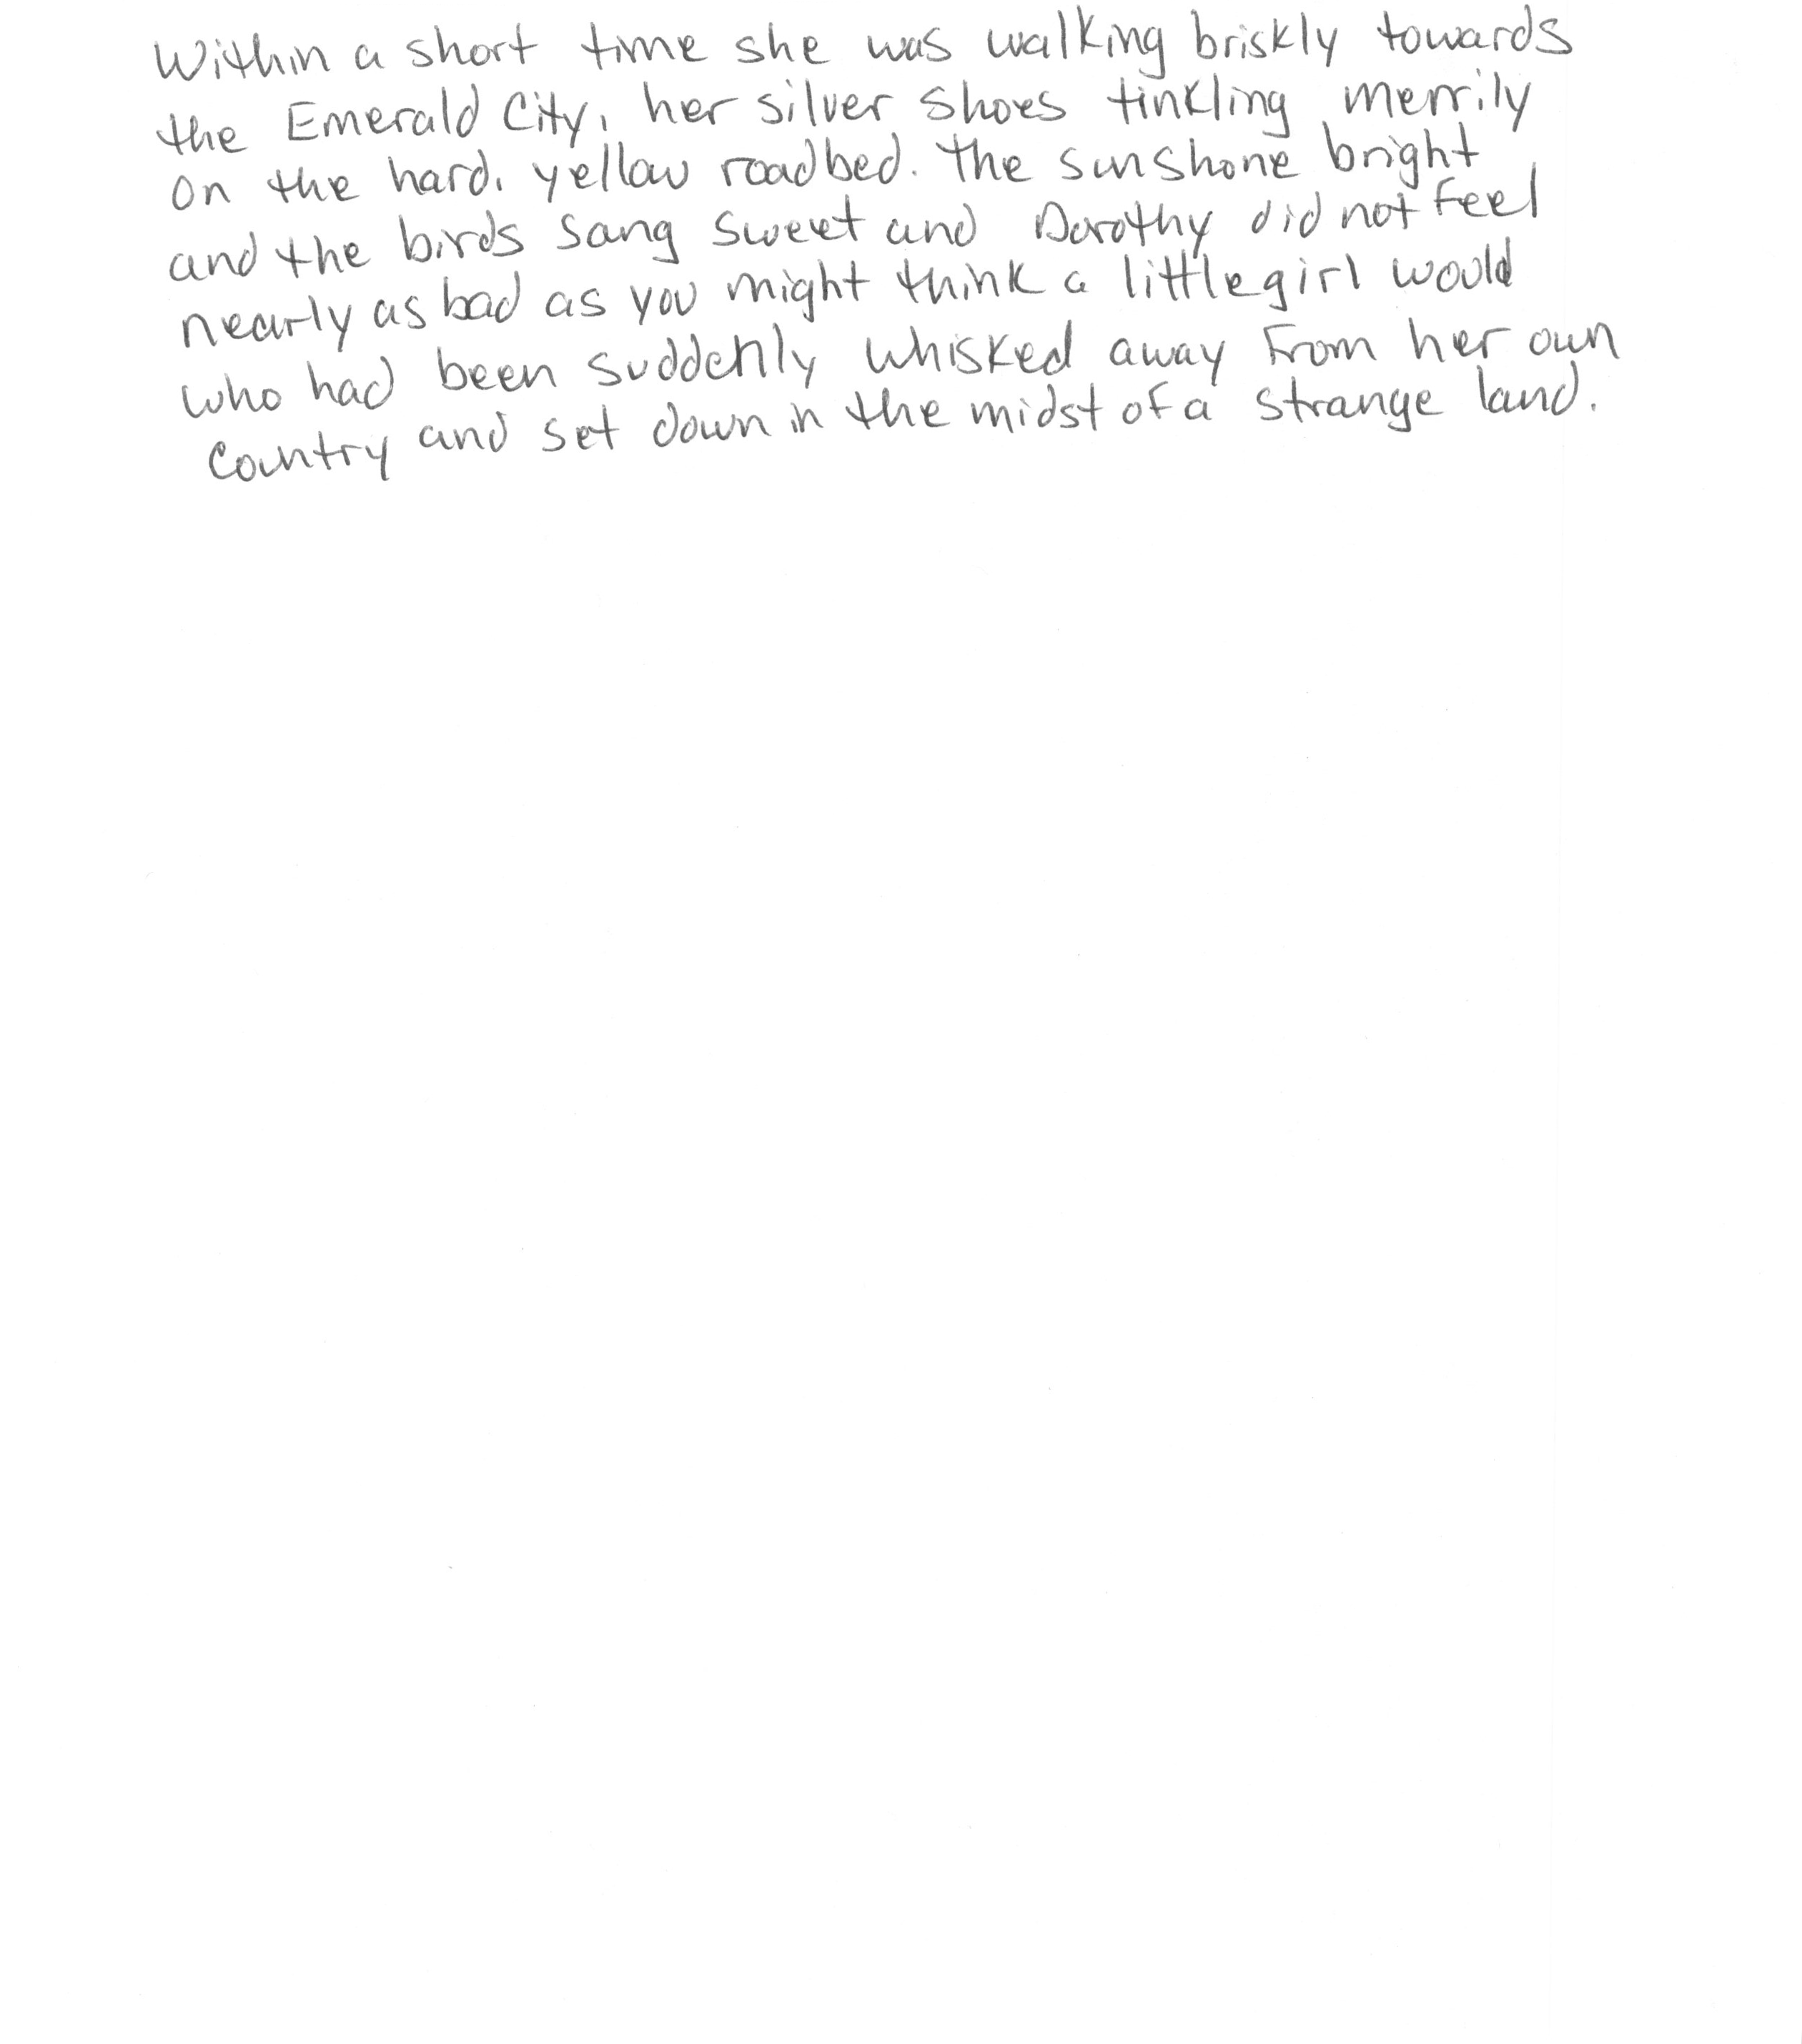 Within a short time she was walking briskly towards
the Emerald City, her silver shoes tinkling merrily
on the hard, yellow roadbed. The sun shone bright
and the birds sang sweet and Dorothy did not feel
nearly as bad as you might think a little girl would
who had been suddenly whisked away from her own
country and set down in the midst of a strange land.